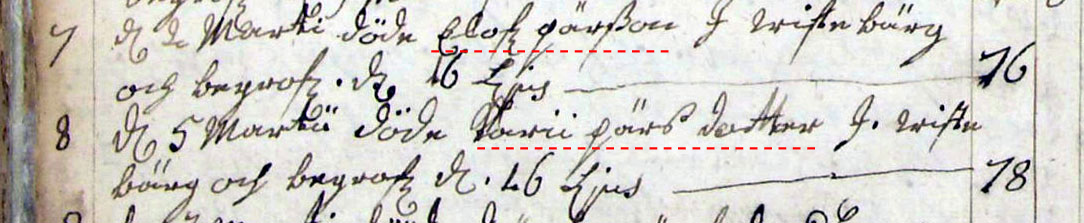 7 d 2 Marti döde Elof pärßon J Wistebärg
och begrofz. d 16 Ejus 76
8 d 5 Martii döde Karii pärs dotter J. Wiste
bärg och begrofz d. 16 Ejus 78